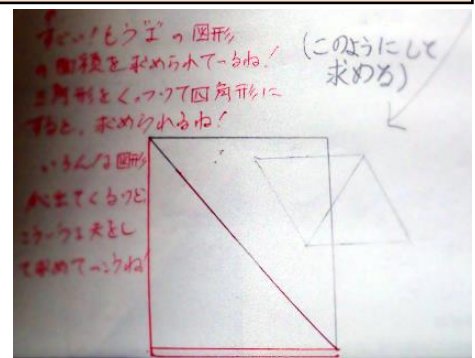 すごい！もう the 図形
の面積を求められているね！
三角形をくっつけて四角形に
すると、求められるね！
いろんな図形
が出てくるけど
こういう工夫をし
て求めていこうね！
(このようにして
求める)